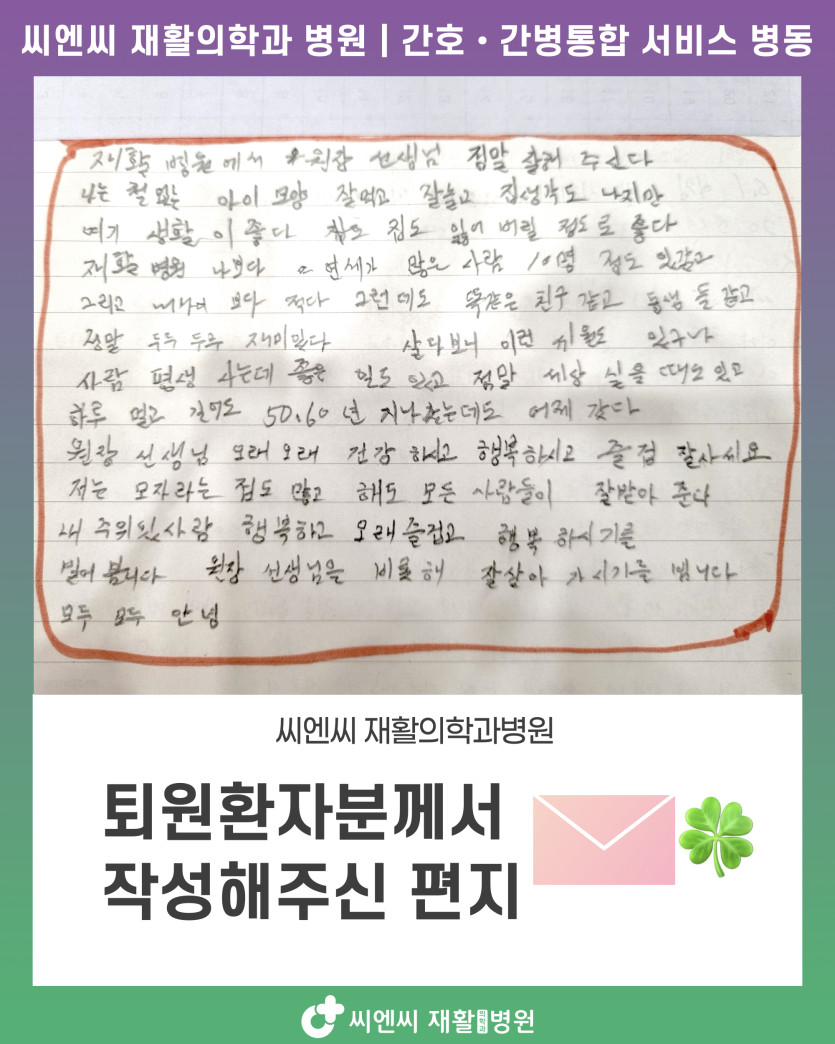 씨엔씨 재활의학과 병원 | 간호 · 간병통합 서비스 병동
재활 병원에서 원장 선생님 정말 잘해 주신다
나는 철없는 아이 모양 잘먹고 잘놀고 집생각도 나지만
여기 생활이 좋다 집도 잃어 버릴 점도로 좋다
재활 병원 나보다 연세가 많은 사람 10명 점도 있갔고
그리고 보다 적다 그런데도 똑같은 친구 같고 동생 들 같고
정말 두루 두루 재미있다 살다보니 이런 있구나
사람 평생 사는데 좋은 일도 있고 점말 세상 싫을 때도 있고
하루 멀고 길어도 50.60년 지나 어제 같다
원장 선생님 오래오래 건강 하시고 행복하시고 즐겁 잘사세요
저는 모자라는 점도 많고 해도 모든 사람들이 잘받아 준다
내 주위 사람 행복하고 오래 즐겁고 행복 하시기를
빌어 봅니다 원장 선생님을 비롯해 잘살아 가시기를 빕니다
모두 모두 안녕
씨엔씨 재활의학과병원
퇴원환자분께서
작성해주신 편지
씨엔씨 재활의학과병원